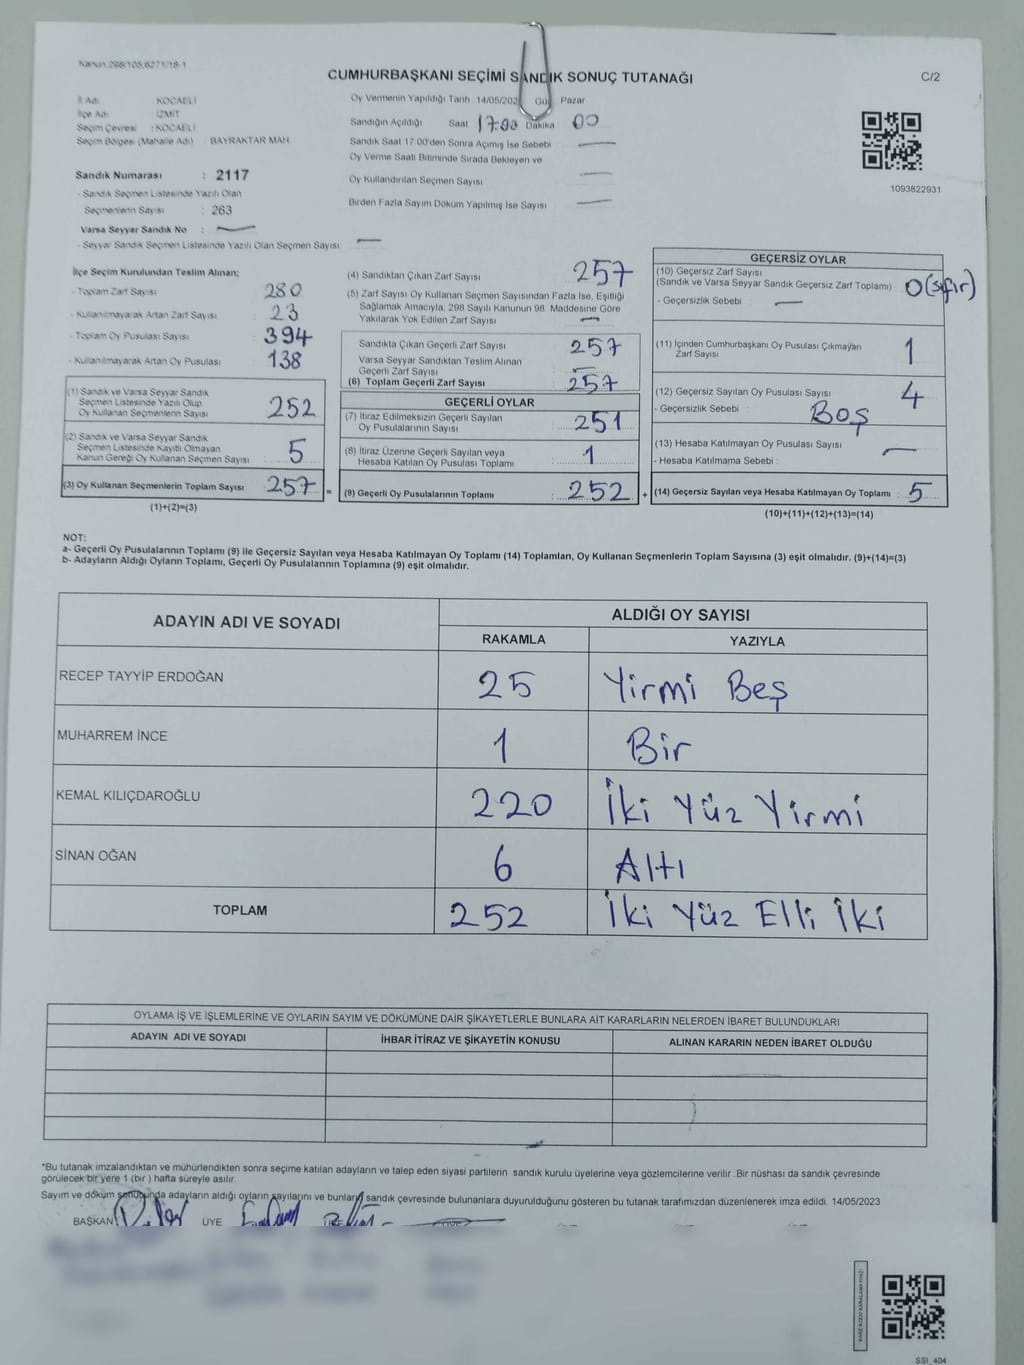 Kanun.298/105,6271/18-1
CUMHURBAŞKANI SEÇİMİ SANDIK SONUÇ TUTANAĞI
C/2
İl Adı KOCAELİ
İlçe Adı İZMİT
Seçim Çevresi : KOCAELİ
Seçim Bölgesi (Mahalle Adı) : BAYRAKTAR MAH
Sandık Numarası : 2117
- Sandık Seçmen Listesinde Yazılı Olan
Seçmenlerin Sayısı : 263
Varsa Seyyar Sandık No : —
- Seyyar Sandık Seçmen Listesinde Yazılı Olan Seçmen Sayısı —
Oy Vermenin Yapıldığı Tarih 14/05/202 Gü Pazar
Sandığın Açıldığı Saat 17:00 Dakika 00
Sandık Saat 17.00'den Sonra Açımış İse Sebebi —
Oy Verme Saati Bitiminde Sırada Bekleyen ve
Oy Kullandırılan Seçmen Sayısı —
Birden Fazla Sayım Döküm Yapılmış İse Sayısı —
1093822931
İlçe Seçim Kurulundan Teslim Alınan;
- Toplam Zarf Sayısı 280
- Kullanılmayarak Artan Zarf Sayısı 23
- Toplam Oy Pusulası Sayısı 394
- Kullanılmayarak Artan Oy Pusulası 138
(1) Sandık ve Varsa Seyyar Sandık
Seçmen Listesinde Yazılı Olup
Oy Kullanan Seçmenlerin Sayısı 252
(2) Sandık ve Varsa Seyyar Sandık
Seçmen Listesinde Kayıtlı Olmayan
Kanun Gereği Oy Kullanan Seçmen Sayısı 5
(3) Oy Kullanan Seçmenlerin Toplam Sayısı 257 =
(1)+(2)=(3)
(4) Sandıktan Çıkan Zarf Sayısı 257
(5) Zarf Sayısı Oy Kullanan Seçmen Sayısından Fazla İse, Eşitliği
Sağlamak Amacıyla, 298 Sayılı Kanunun 98. Maddesine Göre
Yakılarak Yok Edilen Zarf Sayısı —
Sandıkta Çıkan Geçerli Zarf Sayısı 257
Varsa Seyyar Sandıktan Teslim Alınan
Geçerli Zarf Sayısı —
(6) Toplam Geçerli Zarf Sayısı 257
GEÇERLİ OYLAR
(7) İtiraz Edilmeksizin Geçerli Sayılan
Oy Pusulalarının Sayısı : 251
(8) İtiraz Üzerine Geçerli Sayılan veya
Hesaba Katılan Oy Pusulası Toplamı : 1
(9) Geçerli Oy Pusulalarının Toplamı : 252 +
GEÇERSİZ OYLAR
(10) Geçersiz Zarf Sayısı
(Sandık ve Varsa Seyyar Sandık Geçersiz Zarf Toplamı) 0 (sıfır)
- Geçersizlik Sebebi —
(11) İçinden Cumhurbaşkanı Oy Pusulası Çıkmayan
Zarf Sayısı 1
(12) Geçersiz Sayılan Oy Pusulası Sayısı 4
- Geçersizlik Sebebi : Boş
(13) Hesaba Katılmayan Oy Pusulası Sayısı —
- Hesaba Katılmama Sebebi :
(14) Geçersiz Sayılan veya Hesaba Katılmayan Oy Toplamı : 5
(10)+(11)+(12)+(13)=(14)
NOT:
a- Geçerli Oy Pusulalarının Toplamı (9) ile Geçersiz Sayılan veya Hesaba Katılmayan Oy Toplamı (14) Toplamları, Oy Kullanan Seçmenlerin Toplam Sayısına (3) eşit olmalıdır. (9)+(14)=(3)
b- Adayların Aldığı Oyların Toplamı, Geçerli Oy Pusulalarının Toplamına (9) eşit olmalıdır.
ADAYIN ADI VE SOYADI ALDIĞI OY SAYISI
RAKAMLA YAZIYLA
RECEP TAYYİP ERDOĞAN 25 Yirmi Beş
MUHARREM İNCE 1 Bir
KEMAL KILIÇDAROĞLU 220 İki Yüz Yirmi
SİNAN OĞAN 6 Altı
TOPLAM 252 İki Yüz Elli İki
OYLAMA İŞ VE İŞLEMLERİNE VE OYLARIN SAYIM VE DÖKÜMÜNE DAİR ŞİKAYETLERLE BUNLARA AİT KARARLARIN NELERDEN İBARET BULUNDUKLARI
ADAYIN ADI VE SOYADI İHBAR İTİRAZ VE ŞİKAYETİN KONUSU ALINAN KARARIN NEDEN İBARET OLDUĞU
*Bu tutanak imzalandıktan ve mühürlendikten sonra seçime katılan adayların ve talep eden siyasi partilerin sandık kurulu üyelerine veya gözlemcilerine verilir .Bir nüshası da sandık çevresinde
görülecek bir yere 1 (bir ) hafta süreyle asılır.
Sayım ve döküm sonucunda adayların aldığı oyların sayılarını ve bunların sandık çevresinde bulunanlara duyurulduğunu gösteren bu tutanak tarafımızdan düzenlenerek imza edildi. 14/05/2023
BAŞKAN ÜYE
SSI_404